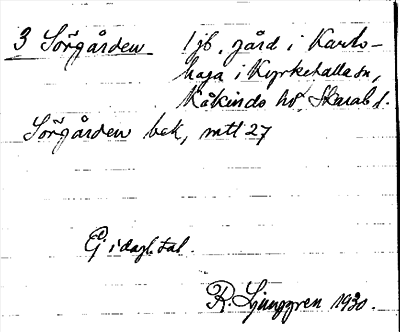 3 Sörgården 1 jb. gård i Karls-
haga i Kyrkefalla sn,
Kåkinds hd, Skarab. l.
Sörgården bek, mtl 27
G i dagl. tal.
R. Ljunggren 1930.